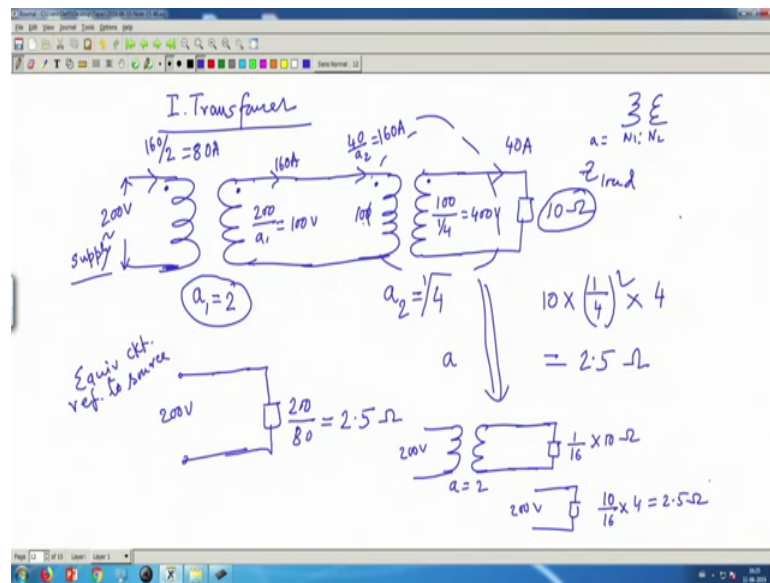 File Edit View Journal Tools Options Help
Sans Normal 12
I. Transfomer
160/2 = 80A
160A
40/a₂ = 160A
40A
a = N₁ : N₂
Z load
200V
supply
200/a₁ = 100V
100
100/¼ = 400V
10Ω
a₁ = 2
a₂ = 1/4
10 × (1/4)² × 4
a
= 2.5 Ω
Equiv ckt.
ref. to source
200V
200/80 = 2.5 Ω
200V
1/16 × 10 Ω
a = 2
200V
10/16 × 4 = 2.5Ω
Page 12 of 15 Layer: Layer 1
16:25